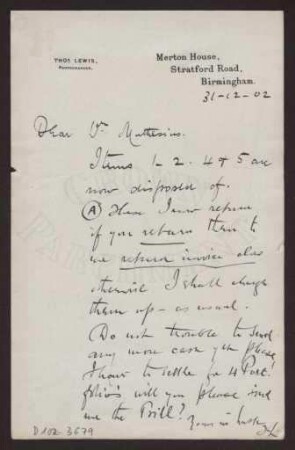 THOS. LEWIS,
Merton House,
Stratford Road,
Birmingham.
31-12-02
Dear Mr. Muthesius.
Items 1-2. 4 & 5 are
now disposed of.
(A) these I now return
if you return them to
me return invoice also
otherwise I shall charge
them up - as usual.
Do not trouble to send
any more cash yet please
I have to settle for 4 Port-
folios will you please send
me the Bill?
Yours in
D 102-3679